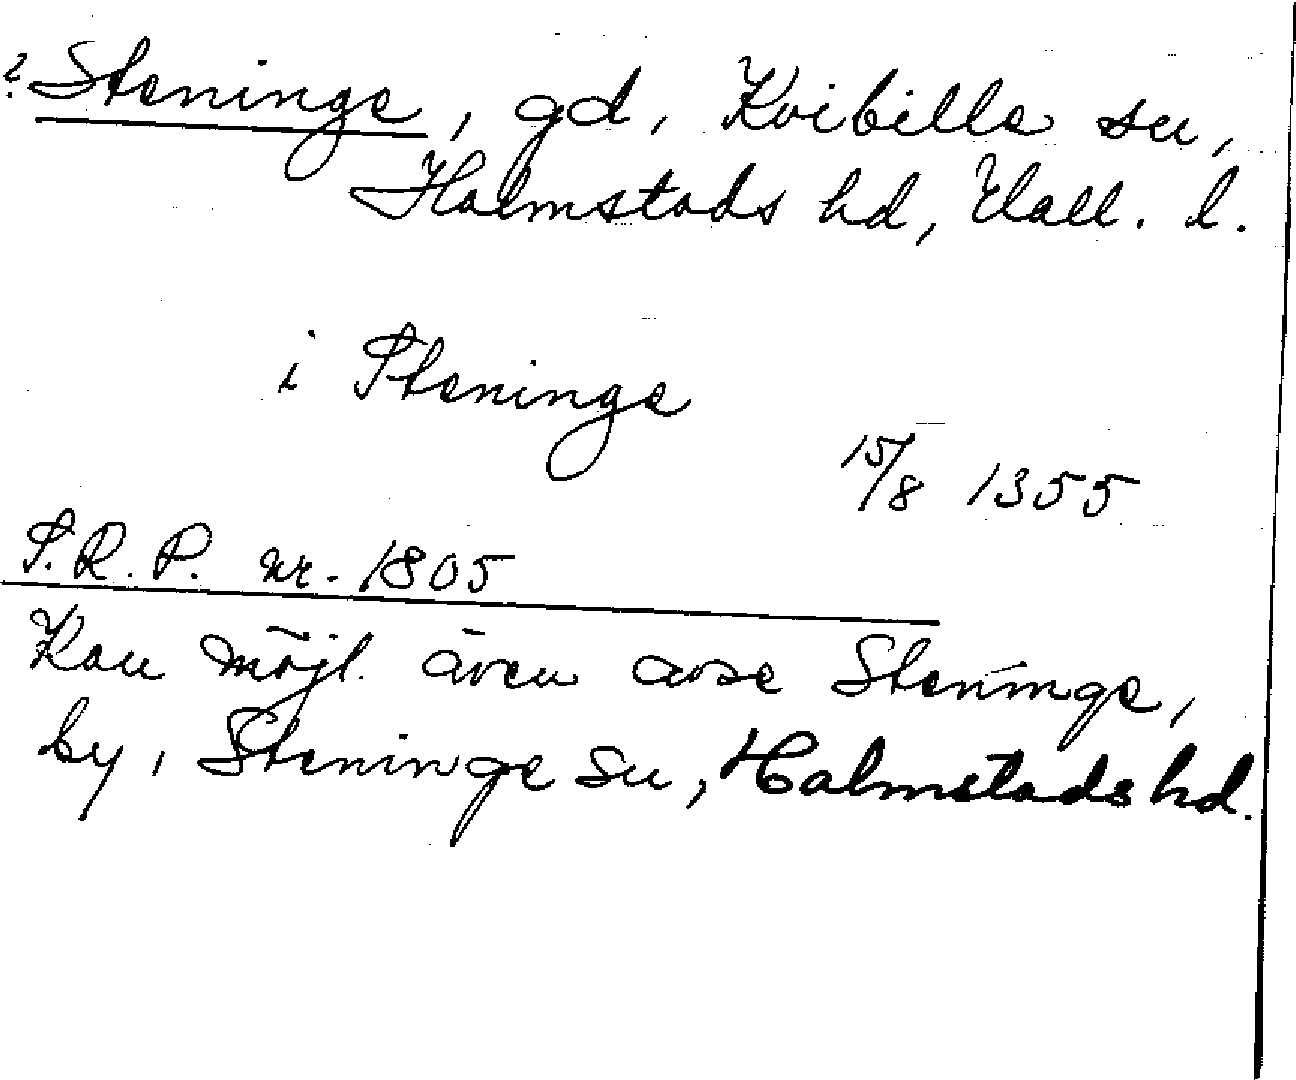 ? Steninge, gd, Kvibille sn,
Halmstads hd, Hall. l.
i Steninge
15/8 1355
S.R.P. nr. 1805
Kan möjl. även avse Steninge,
by, Steninge sn, Halmstads hd.